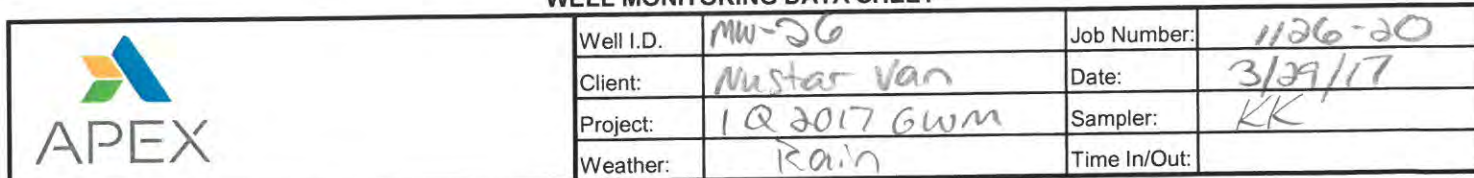 WELL MONITORING DATA SHEET
APEX
Well I.D. MW-26 Job Number: 1126-20
Client: Nustar Van Date: 3/29/17
Project: 1Q 2017 GWM Sampler: KK
Weather: Rain Time In/Out: